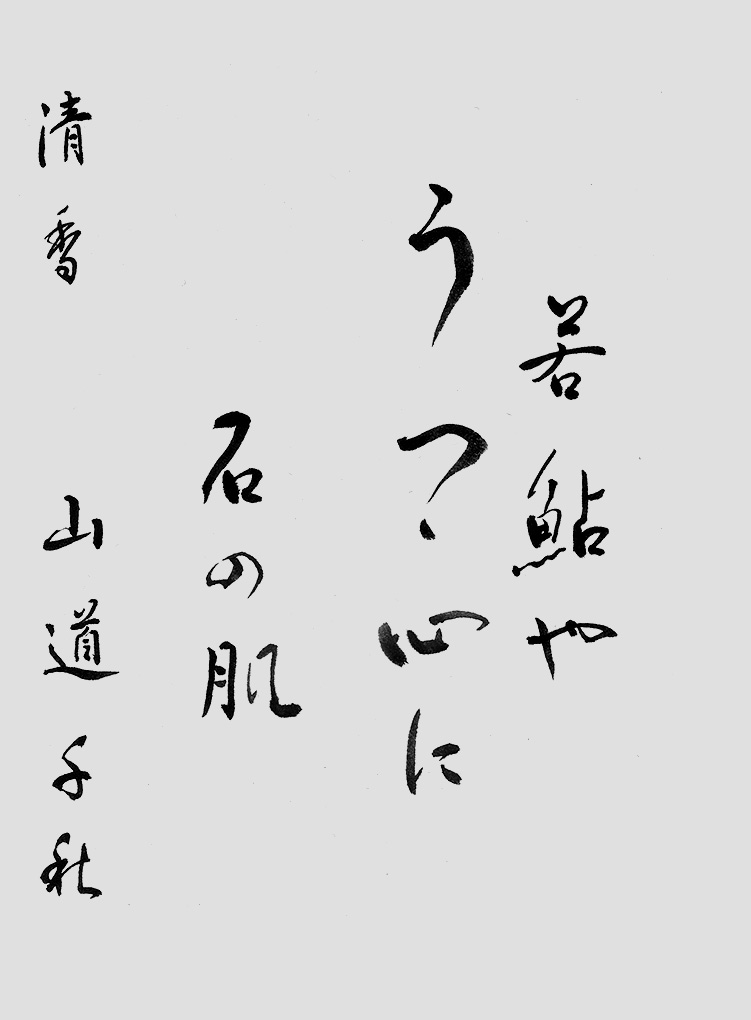 若鮎や
うつゝ心に
石の肌
清香 山道千秋